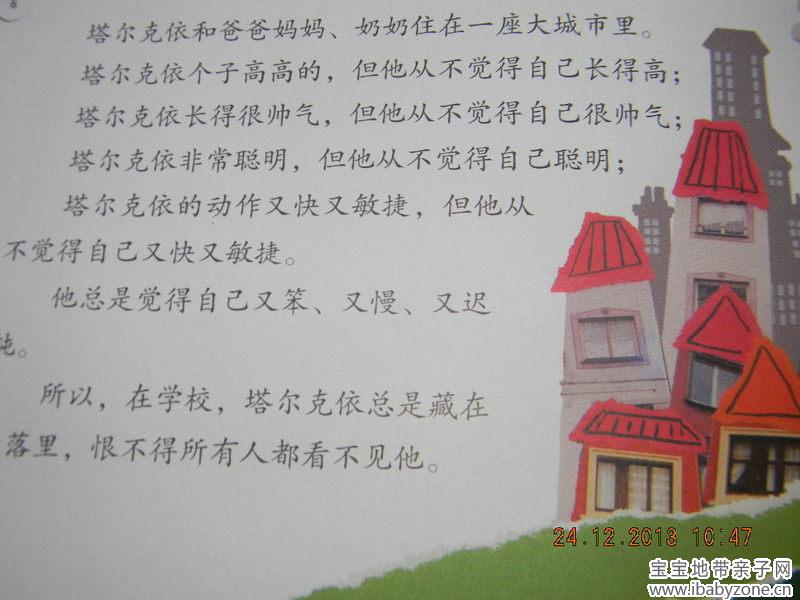 6
塔尔克依和爸爸妈妈、奶奶住在一座大城市里。
塔尔克依个子高高的，但他从不觉得自己长得高；
塔尔克依长得很帅气，但他从不觉得自己很帅气；
塔尔克依非常聪明，但他从不觉得自己聪明；
塔尔克依的动作又快又敏捷，但他从
不觉得自己又快又敏捷。
他总是觉得自己又笨、又慢、又迟
钝。
所以，在学校，塔尔克依总是藏在
落里，恨不得所有人都看不见他。
24.12.2013 10:47
宝宝地带亲子网
www.ibabyzone.cn